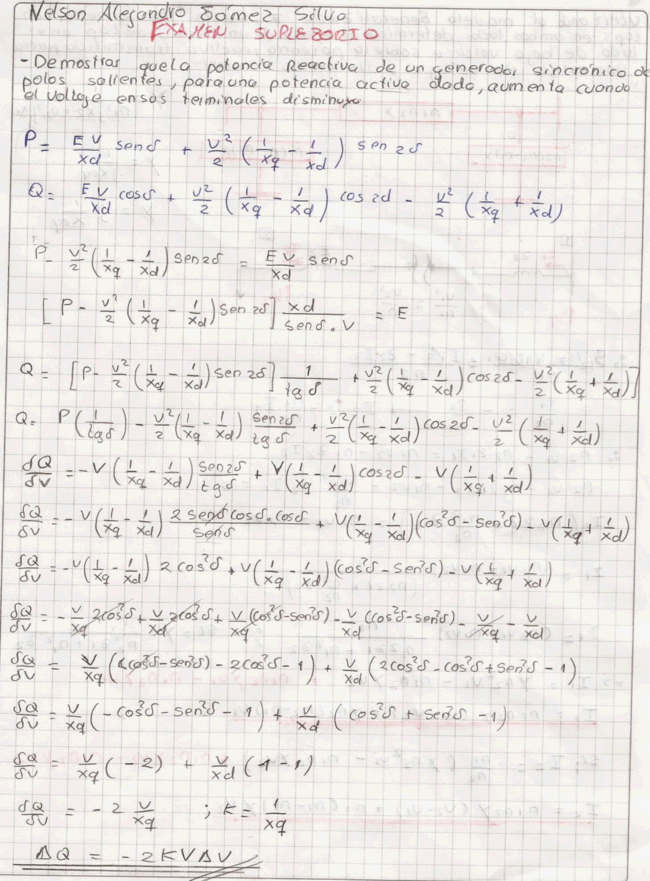 Nelson Alejandro Gómez Silva
EXAMEN SUPLETORIO
- Demostrar que la potencia Reactiva de un generador sincrónico de
polos salientes, para una potencia activa dada, aumenta cuando
el voltaje en sus terminales disminuye
P = EV/xd senδ + V²/2 (1/xq - 1/xd) sen 2δ
Q = EV/xd cosδ + V²/2 (1/xq - 1/xd) cos 2d - V²/2 (1/xq + 1/xd)
P - V²/2 (1/xq - 1/xd) sen2δ = EV/xd senδ
[P - V²/2 (1/xq - 1/xd) sen 2δ] xd/senδ.V = E
Q = [P - V²/2 (1/xq - 1/xd) sen 2δ] 1/tgδ + V²/2 (1/xq - 1/xd) cos2δ - V²/2 (1/xq + 1/xd)]
Q = P(1/tgδ) - V²/2 (1/xq - 1/xd) sen2δ/tgδ + V²/2 (1/xq - 1/xd) cos2δ - V²/2 (1/xq + 1/xd)
δQ/δV = -V(1/xq - 1/xd) sen2δ/tgδ + V(1/xq - 1/xd) cos2δ - V(1/xq + 1/xd)
δQ/δV = -V(1/xq - 1/xd) 2 senδ cosδ.cosδ/senδ + V(1/xq - 1/xd)(cos²δ - sen²δ) - V(1/xq + 1/xd)
δQ/δV = -V(1/xq - 1/xd) 2 cos²δ + V(1/xq - 1/xd)(cos²δ - sen²δ) - V(1/xq + 1/xd)
δQ/δV = -V/xq 2cos²δ + V/xd 2cos²δ + V/xq (cos²δ - sen²δ) - V/xd (cos²δ - sen²δ) - V/xq - V/xd
δQ/δV = V/xq (cos²δ - sen²δ) - 2cos²δ - 1) + V/xd (2cos²δ - cos²δ + sen²δ - 1)
δQ/δV = V/xq (-cos²δ - sen²δ - 1) + V/xd (cos²δ + sen²δ - 1)
δQ/δV = V/xq (-2) + V/xd (1-1)
δQ/δV = -2 V/xq ; K = 1/xq
ΔQ = -2KVΔV